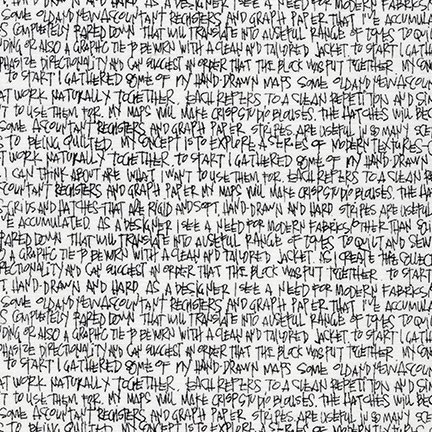 AS A DESIGNER I SEE A NEED FOR MODERN FABRICS
SOME OLD AND NEW ACCOUNTANT REGISTERS AND GRAPH PAPER THAT I'VE ACCUMULA
S COMPLETELY PARED DOWN THAT WILL TRANSLATE INTO A USEFUL RANGE OF TONES TO QUI
DING OR ALSO A GRAPHIC TIE TO BE WORN WITH A CLEAN AND TAILORED JACKET. TO START I GATHE
PHASIZE DIRECTIONALITY AND CAN SUGGEST AN ORDER THAT THE BLOCK WAS PUT TOGETHER MY CON
TO START I GATHERED SOME OF MY HAND-DRAWN MAPS SOME OLD AND NEW ACCOUN
AT WORK NATURALLY TOGETHER. EACH REFERS TO A CLEAN REPETITION AND SIM
T TO USE THEM FOR. MY MAPS WILL MAKE CRISP STUDIO BLOUSES. THE HATCHES WILL BEC
SOME ACCOUNTANT REGISTERS AND GRAPH PAPER STRIPES ARE USEFUL IN SO MANY SCE
S TO BEING QUILTED. MY CONCEPT IS TO EXPLORE A SERIES OF MODERN TEXTURES
T WORK NATURALLY TOGETHER. TO START I GATHERED SOME OF MY HAND-DRAWN
I CAN THINK ABOUT ARE WHAT I WANT TO USE THEM FOR. EACH REFERS TO A CLEAN
COUNTANT REGISTERS AND GRAPH PAPER MY MAPS WILL MAKE CRISP STUDIO BLOUSES. THE HA
GRIDS AND HATCHES THAT ARE RIGID AND SOFT, HAND-DRAWN AND HARD STRIPES ARE USEFUL
'VE ACCUMULATED. AS A DESIGNER I SEE A NEED FOR MODERN FABRICS OTHER THAN
PARED DOWN THAT WILL TRANSLATE INTO A USEFUL RANGE OF TONES TO QUILT AND SEW
O A GRAPHIC TIE TO BE WORN WITH A CLEAN AND TAILORED JACKET. AS I CREATE THE COLLEC
RECTIONALITY AND CAN SUGGEST AN ORDER THAT THE BLOCK WAS PUT TOGETHER TO START
T, HAND-DRAWN AND HARD AS A DESIGNER I SEE A NEED FOR MODERN FABRICS
SOME OLD AND NEW ACCOUNTANT REGISTERS AND GRAPH PAPER THAT I'VE ACCUMULA
S COMPLETELY PARED DOWN THAT WILL TRANSLATE INTO A USEFUL RANGE OF TONES TO QUI
DING OR ALSO A GRAPHIC TIE TO BE WORN WITH A CLEAN AND TAILORED JACKET. TO START I GATHE
PHASIZE DIRECTIONALITY AND CAN SUGGEST AN ORDER THAT THE BLOCK WAS PUT TOGETHER MY CON
TO START I GATHERED SOME OF MY HAND-DRAWN MAPS SOME OLD AND NEW ACCOUN
AT WORK NATURALLY TOGETHER. EACH REFERS TO A CLEAN REPETITION AND SIM
T TO USE THEM FOR. MY MAPS WILL MAKE CRISP STUDIO BLOUSES. THE HATCHES WILL BEC
SOME ACCOUNTANT REGISTERS AND GRAPH PAPER STRIPES ARE USEFUL IN SO MANY SCE
S TO BEING QUILTED. MY CONCEPT IS TO EXPLORE A SERIES OF MODERN TEXTURES